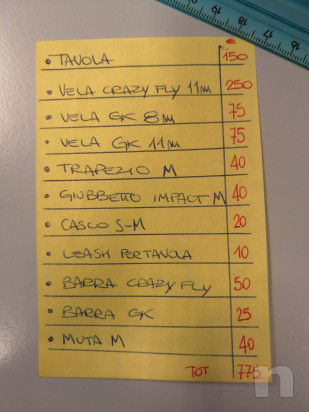 €
• TAVOLA 150
• VELA CRAZY FLY 11m 250
• VELA GK 8m 75
• VELA GK 11m 75
• TRAPEZIO M 40
• GIUBBETTO IMPACT M 40
• CASCO S-M 20
• LEASH PORTAVOLA 10
• BARRA CRAZY FLY 50
• BARRA GK 25
• MUTA M 40
TOT 775
n